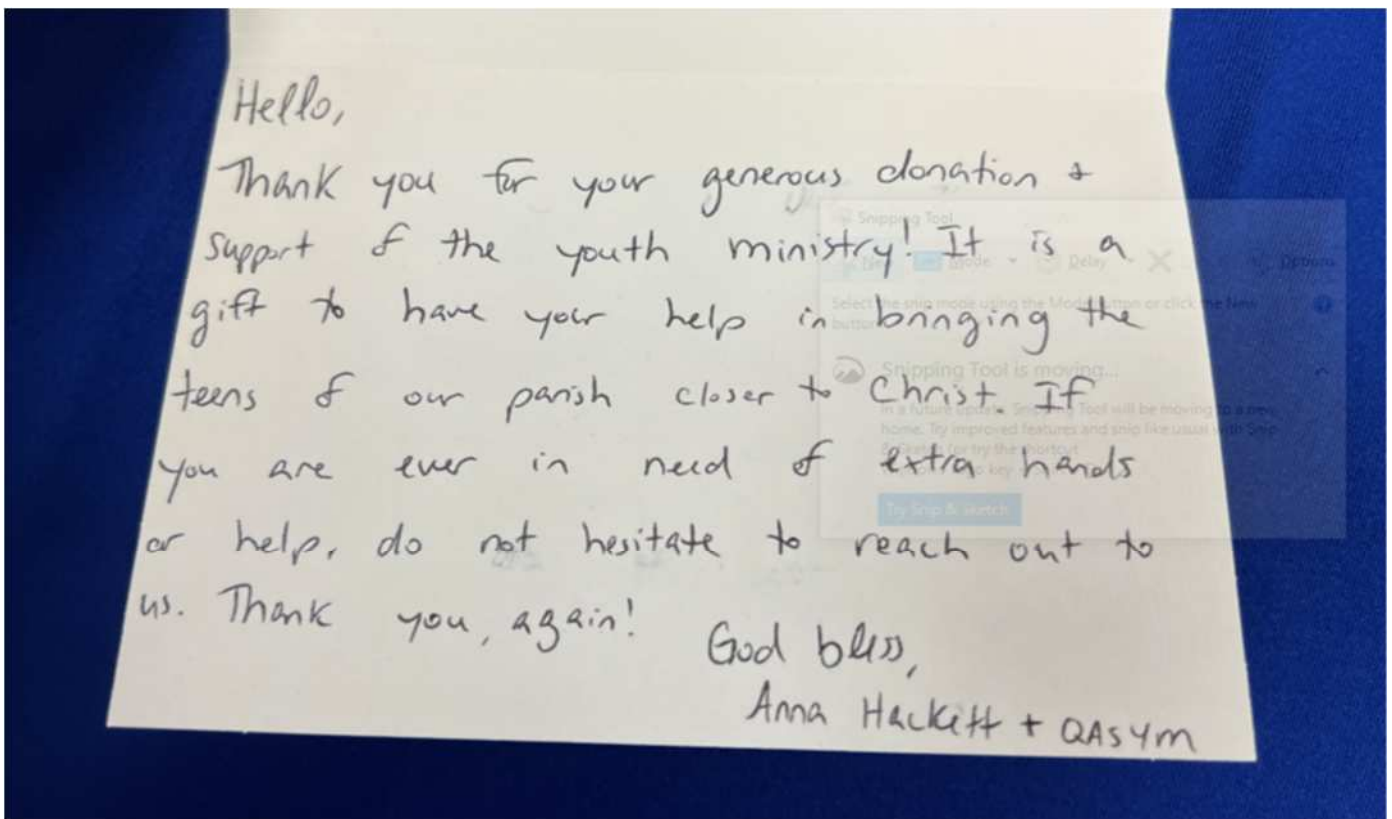 Hello,
Thank you for your generous donation +
support of the youth ministry! It is a
gift to have your help in bringing the
teens of our parish closer to Christ. If
you are ever in need of extra hands
or help, do not hesitate to reach out to
us. Thank you, again!
God bless,
Anna Hackett + QASYM
Snipping Tool
Mode
Delay
Options
Select the snip mode using the Mode button or click the New
button
Snipping Tool is moving...
In a future update, Snipping Tool will be moving to a new
home. Try improved features and snip like usual with Snip
& Sketch (or try the shortcut
Try Snip & Sketch